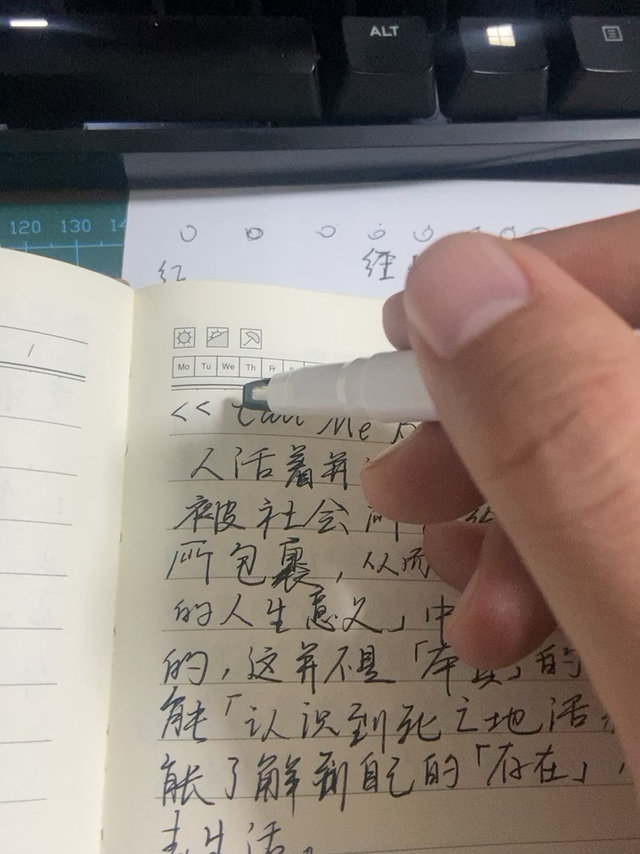 ALT
120 130
红 经
Mo Tu We Th Fr
<< Me
人活着并
被社会所
所包裹，从而
的人生意义」中
的，这并不是「本真」的
能「认识到死之地活
能了解到自己的「存在」，
去生活。